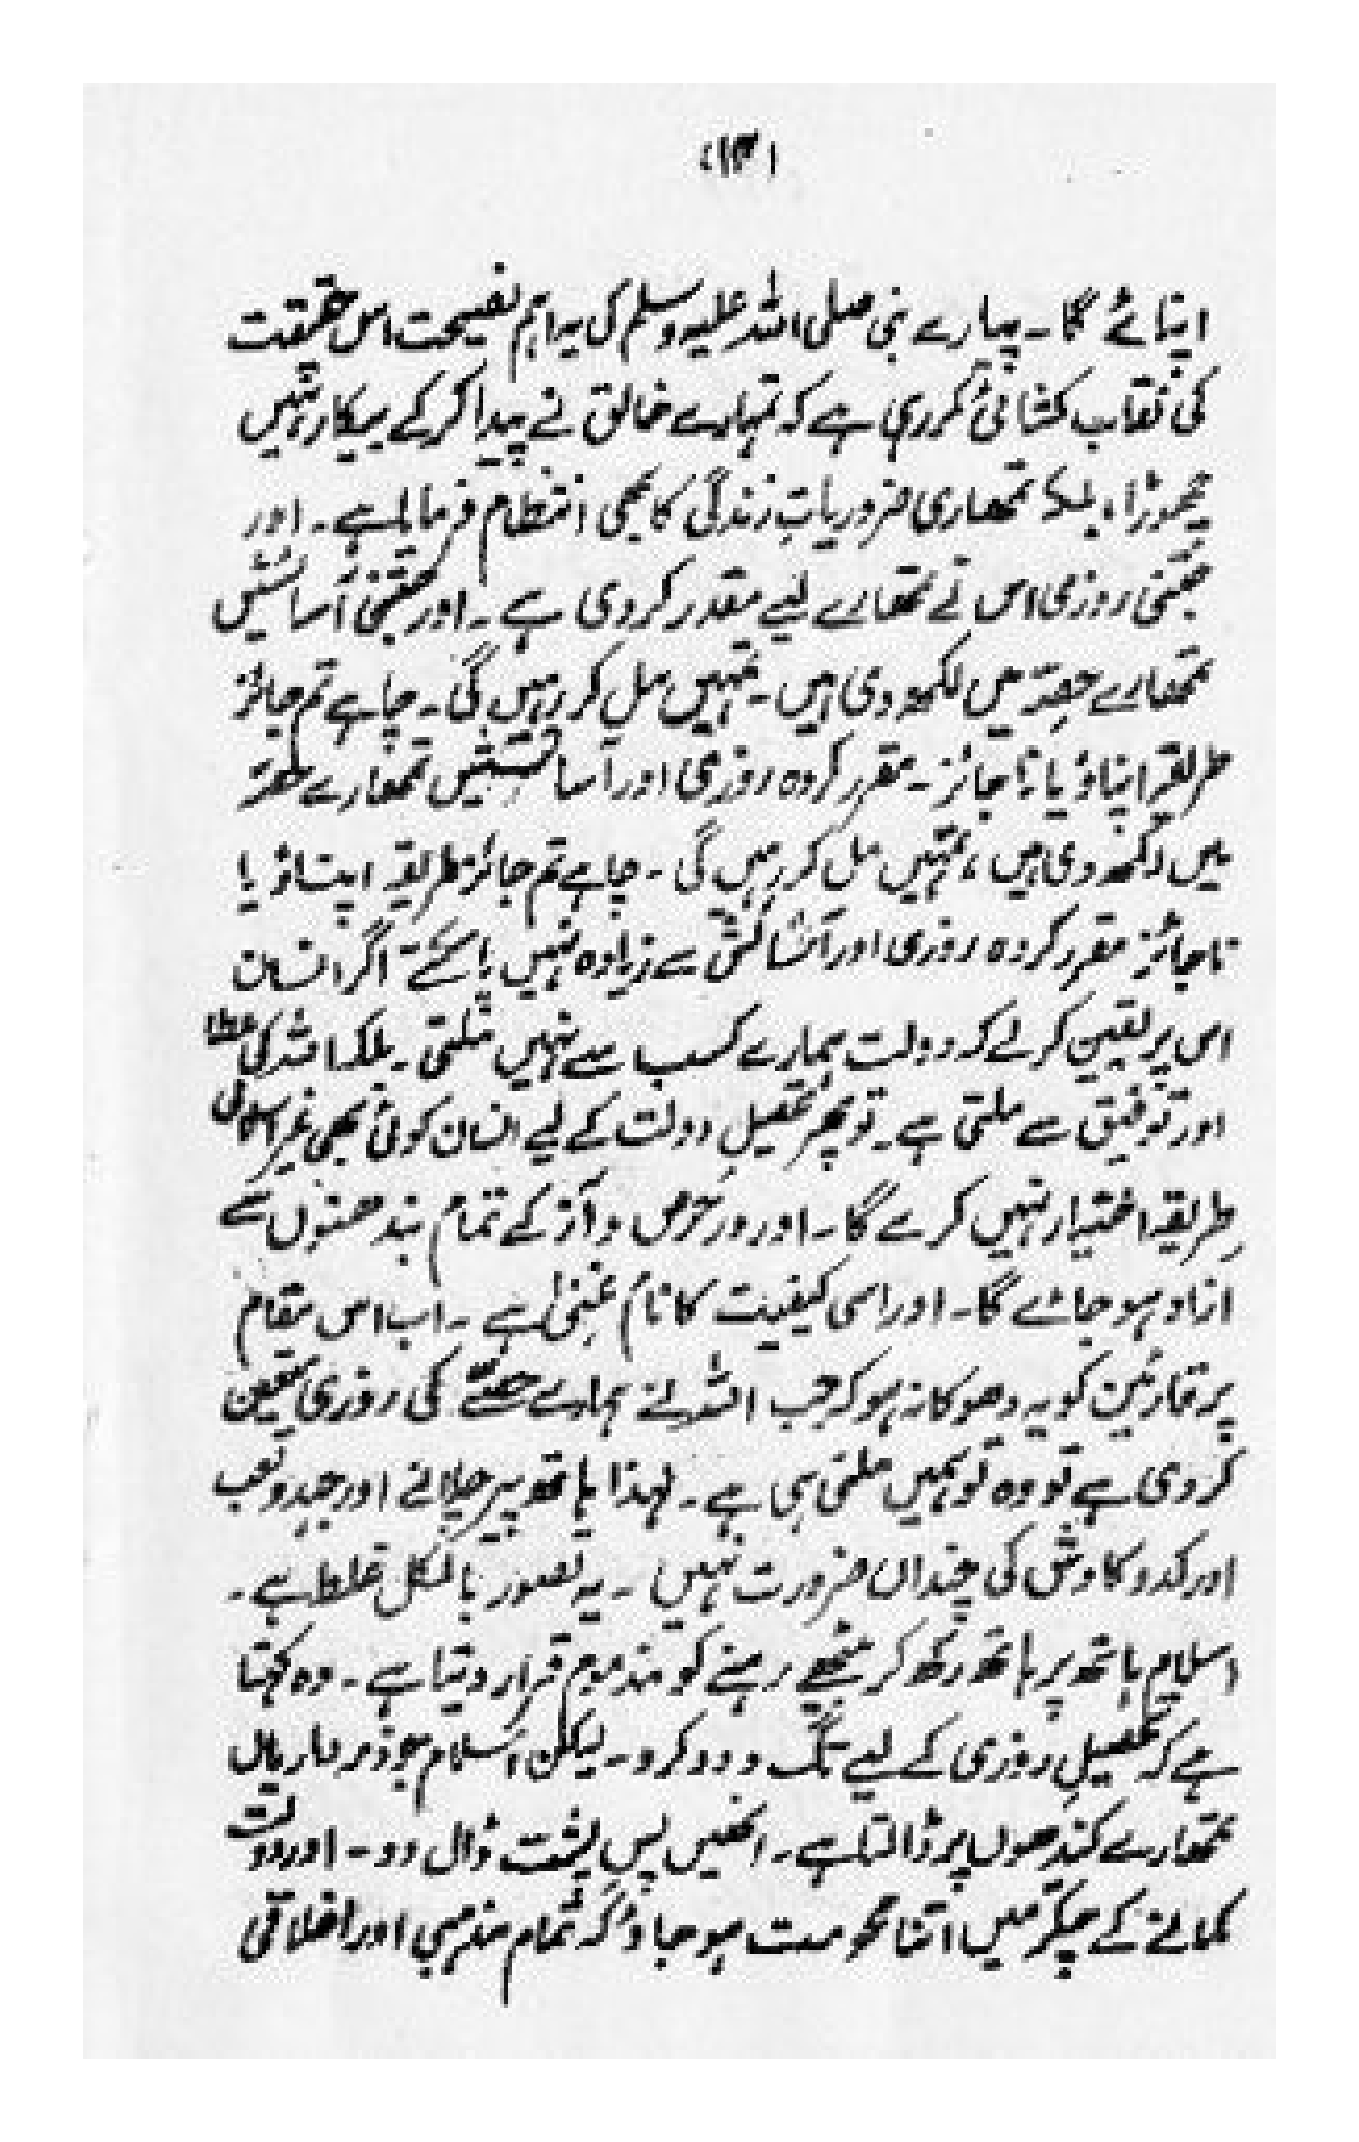 (۱۳)
اپنائے گا۔ پیارے نبی صلی اللہ علیہ وسلم کی یہ اہم نصیحت اس حقیقت
کی نقاب کشائی کر رہی ہے کہ تمہارے خالق نے پیدا کر کے بیکار نہیں
چھوڑا، بلکہ تمھاری ضروریاتِ زندگی کا بھی انتظام فرمایا ہے۔ اور
جتنی روزی اس نے تمھارے لیے مقدر کر دی ہے۔ اور جتنی آسائشیں
تمھارے حصّہ میں لکھ دی ہیں۔ تمہیں مل کر رہیں گی۔ چاہے تم جائز
طریقہ اپناؤ یا ناجائز۔ مقرر کردہ روزی اور آسائشیں تمھارے حصّہ
میں لکھ دی ہیں، تمہیں مل کر رہیں گی۔ چاہے تم جائز طریقہ اپناؤ یا
ناجائز مقرر کردہ روزی اور آشائش سے زیادہ نہیں پا سکتے اگر انسان
اس پر یقین کر لے کہ دولت ہمارے کسب سے نہیں ملتی۔ بلکہ اللہ کی عطا
اور توفیق سے ملتی ہے۔ تو پھر تحصیلِ دولت کے لیے انسان کوئی بھی غیر اسلامی
طریقہ اختیار نہیں کرے گا۔ اور ورحرص و آز کے تمام بندھنوں سے
ازاد ہو جائے گا۔ اور اسی کیفیت کا نام غِنیٰ ہے۔ اب اس مقام
پر قارئین کو یہ دھوکا نہ ہو کہ جب اللہ نے ہمارے حصّے کی روزی متعین
کر دی ہے تو وہ تو ہمیں ملنی ہی ہے۔ لہذا ہاتھ پیر چلانے اور جہد و تعب
اور کدو کاوش کی چنداں ضرورت نہیں۔ یہ تصور بالکل غلط ہے۔
اسلام ہاتھ پر ہاتھ رکھ کر بیٹھے رہنے کو مذموم قرار دیتا ہے۔ وہ کہتا
ہے کہ تحصیلِ روزی کے لیے تگ و دو کرو۔ لیکن اسلام جو ذمہ داریاں
تمھارے کندھوں پر ڈالتا ہے۔ انھیں پسِ پشت ڈال دو۔ اور دولت
کمانے کے چکر میں اتنا محو مت ہو جاؤ کہ تمام مذہبی اور اخلاقی